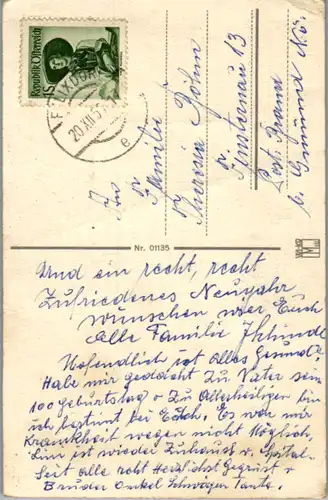 Republik Österreich
1S
FELIXDORF
20.XII.5
e
An
Familie
Theresia Böhm
13
Post
b. Gmünd N.Ö.
Nr. 01135
Und ein recht, recht
Zufriedenes Neujahr
wünschen wier Euch
Alle Familie
Hofendlich ist Alles Gesund?
Habe mir gedacht zu Vater sein
100 Geburtstag o Zu Allerheiligen bin
ich bestimt bei Euch. Es war mir
Krankheit wegen nicht Möglich,
bin ist wieder Zuhaus v. Spital.
Seit alle recht Herzlichst Gegrüst v
Bruder Onkel Schwager Tante.